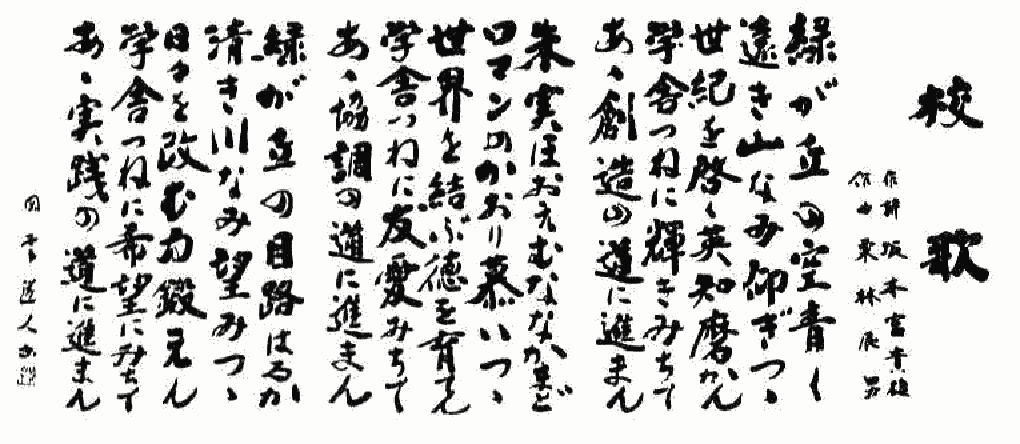 校歌
作詞 坂本吉
作曲 東林辰男
緑が丘の空青く
遠き山なみ仰ぎつゝ
世紀を啓く英知磨かん
学舎つねに輝きみちて
あゝ創造の道に進まん
朱実ほおえむななかまど
ロマンのかおり慕いつゝ
世界を結ぶ徳を育てん
学舎つねに友愛みちて
あゝ協調の道に進まん
緑が丘の目路はるか
清き川なみ望みつゝ
日々を改む力鍛えん
学舎つねに希望にみちて
あゝ実践の道に進まん
道人書